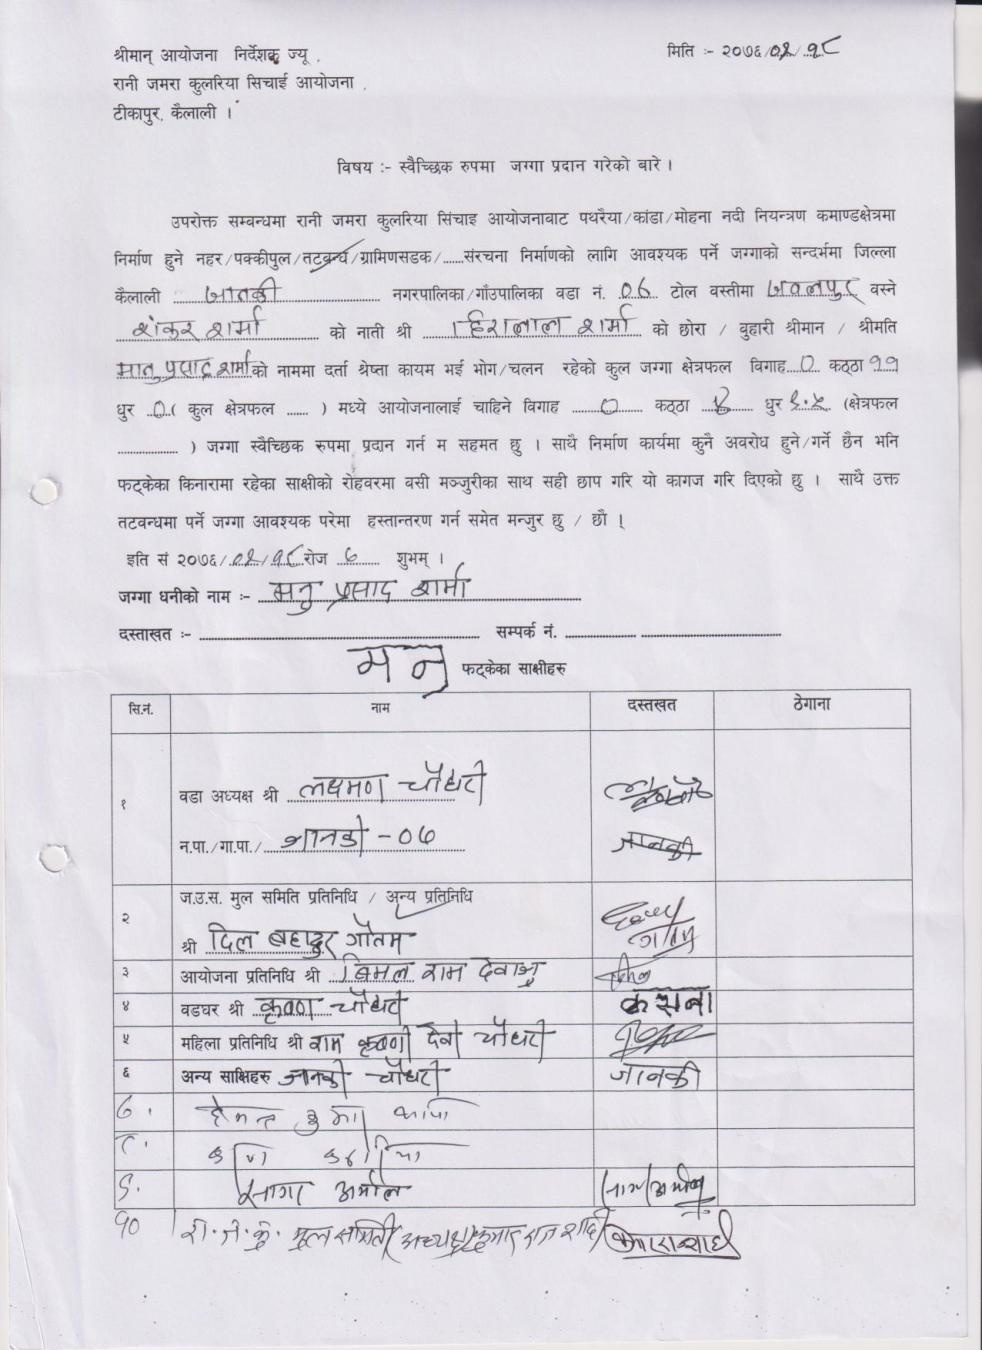 श्रीमान् आयोजना निर्देशक ज्यू ,
मिति :- २०७६/०२/१८
रानी जमरा कुलरिया सिचाई आयोजना ,
टीकापुर, कैलाली ।
विषय :- स्वैच्छिक रुपमा जग्गा प्रदान गरेको बारे ।
उपरोक्त सम्बन्धमा रानी जमरा कुलरिया सिंचाइ आयोजनाबाट पथरैया/कांडा/मोहना नदी नियन्त्रण कमाण्डक्षेत्रमा
निर्माण हुने नहर/पक्कीपुल/तटबन्ध/ग्रामिणसडक/......संरचना निर्माणको लागि आवश्यक पर्ने जग्गाको सन्दर्भमा जिल्ला
कैलाली जानकी नगरपालिका/गाँउपालिका वडा नं. ०७ टोल वस्तीमा जबलपुर वस्ने
शंकर शर्मा को नाती श्री हिरालाल शर्मा को छोरा / बुहारी श्रीमान / श्रीमति
प्रसाद शर्मा को नाममा दर्ता श्रेष्ता कायम भई भोग/चलन रहेको कुल जग्गा क्षेत्रफल विगाह ० कठ्ठा ११
धुर ० ( कुल क्षेत्रफल ...... ) मध्ये आयोजनालाई चाहिने विगाह ० कठ्ठा धुर (क्षेत्रफल
.................. ) जग्गा स्वैच्छिक रुपमा प्रदान गर्न म सहमत छु । साथै निर्माण कार्यमा कुनै अवरोध हुने/गर्ने छैन भनि
फट्केका किनारामा रहेका साक्षीको रोहवरमा वसी मञ्जुरीका साथ सही छाप गरि यो कागज गरि दिएको छु । साथै उक्त
तटवन्धमा पर्ने जग्गा आवश्यक परेमा हस्तान्तरण गर्न समेत मन्जुर छु / छौं ।
इति सं २०७६/०२/१८ रोज ६ शुभम् ।
जग्गा धनीको नाम :- मनु प्रसाद शर्मा
दस्ताखत :- सम्पर्क नं.
मनु फट्केका साक्षीहरु
सि.नं. नाम दस्तखत ठेगाना
१ वडा अध्यक्ष श्री लक्ष्मण चौधरी
न.पा./गा.पा./ जानकी -०७ जानकी
२ ज.उ.स. मुल समिति प्रतिनिधि / अन्य प्रतिनिधि
श्री दिल बहादुर गौतम
३ आयोजना प्रतिनिधि श्री बिमल राम
४ वडघर श्री कृष्ण चौधरी
५ महिला प्रतिनिधि श्री राम कृष्णी देवी चौधरी
६ अन्य साक्षिहरु जानकी चौधरी जानकी
७. हेमन्त
८.
९. सागर
१० रा.ज.कु. मूल समिति अध्यक्ष